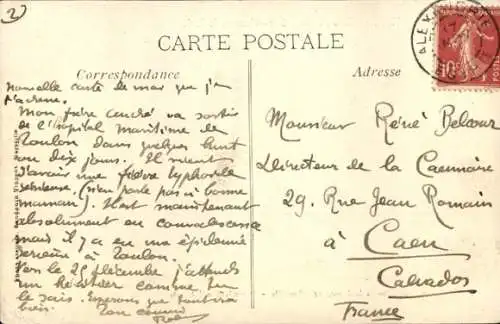 2)
CARTE POSTALE
Correspondance
Adresse
Nouvelle carte de mer que j'ai
Mon frère André va sortir
de l'Hôpital Maritime de
Toulon dans quelques huit
ou dix jours. Il vient
d'avoir une fièvre typhoïde
sérieuse. (n'en parle pas à bonne
maman). Il est maintenant
absolument en convalescence
mais il y a eu une épidémie
sérieuse à Toulon.
Vers le 25 décembre j'attends
un héritier comme tu
le sais. Espérons que tout ira
bien. Ton cousin
Monsieur René Belcour
Directeur de la
29, Rue Jean Romain
à Caen
Calvados
France
ALEXANDRIE
10c